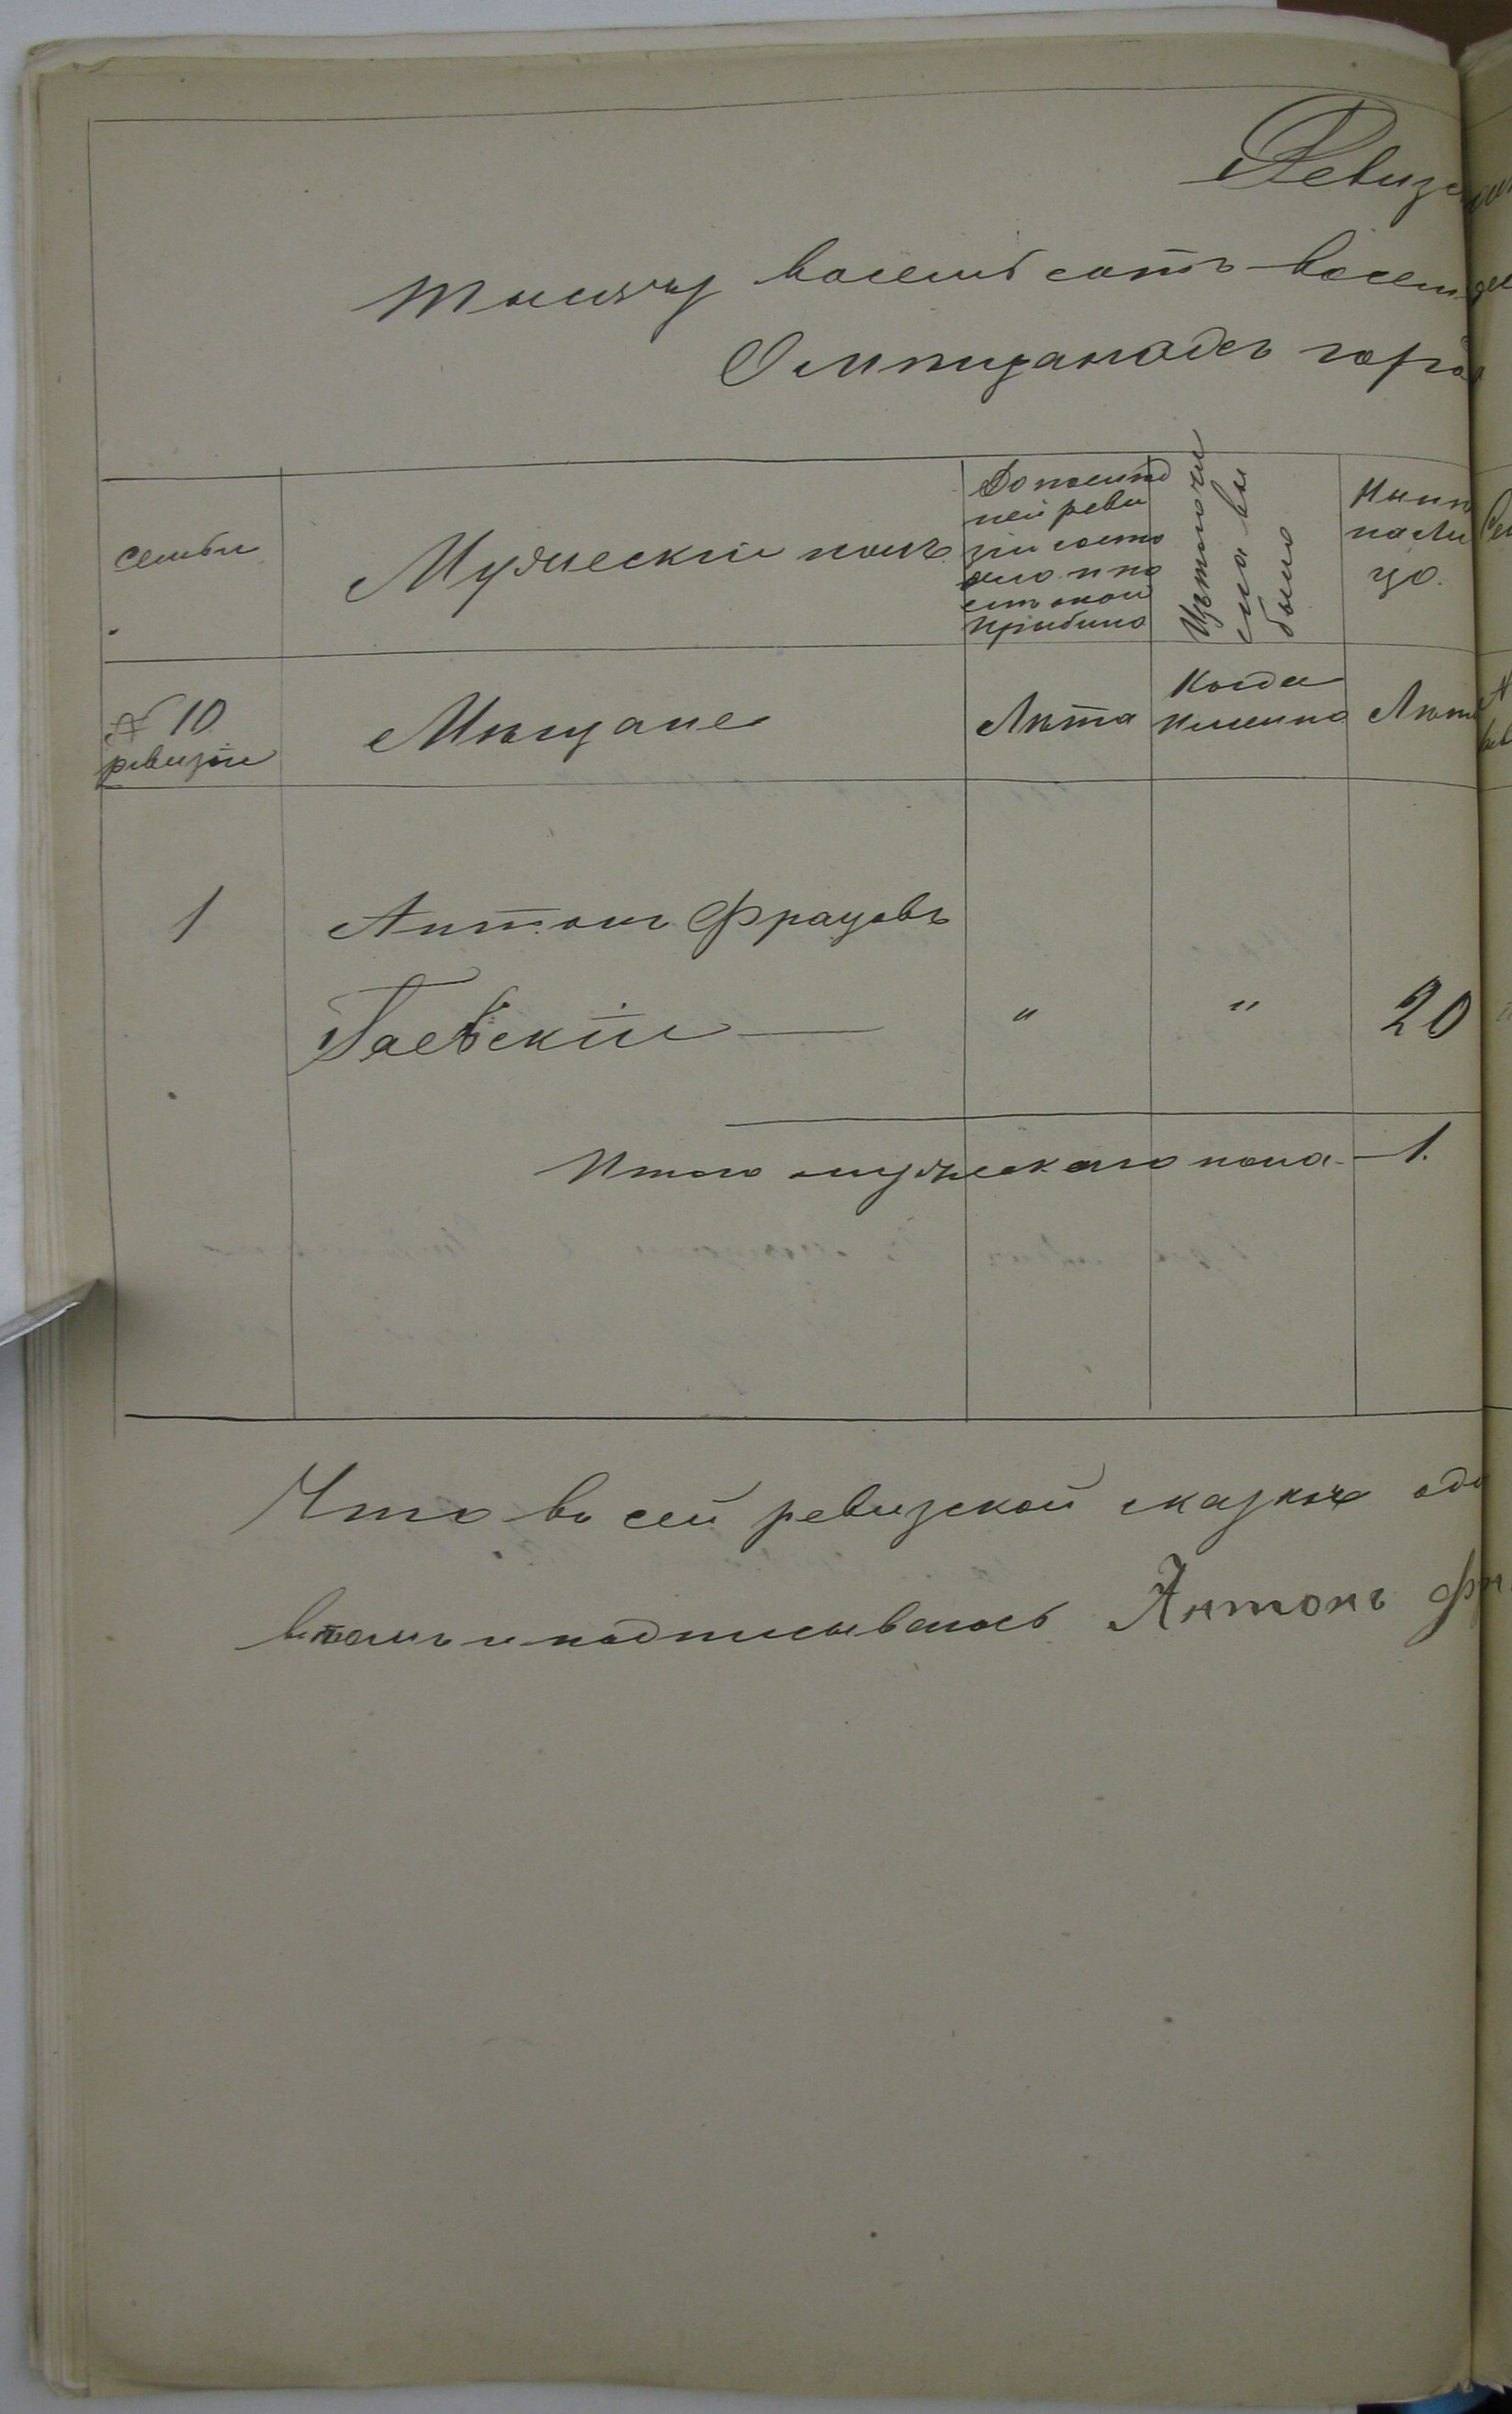 Ревизс
тысячу восемь сотъ восемде
горо
семьи
Мужескій полъ.
До послѣд
ней реви
зіи состо
яло и по
слѣ оной
прибыло
Изъ того чи
сла вы
было
Нынѣ
на Ли
цо.
№ 10
ревизіи
Мѣщане
Лѣта
Когда
именно
Лѣта
1
Антонъ Францовъ
Гаевскій — " " 20
Итого мужескаго пола — 1.
Что въ сей ревизской сказкѣ
въ томъ и подписываюсь Антонъ Фр